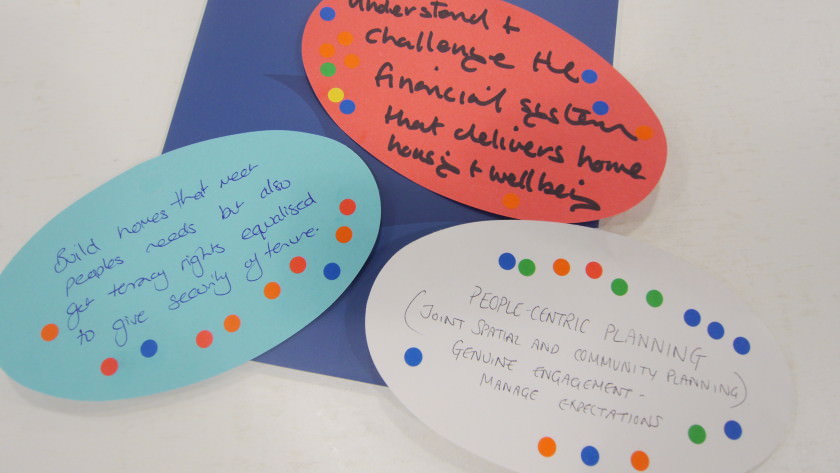 understand +
challenge the
financial system
that delivers home
housing + wellbeing
Build homes that meet
peoples needs but also
get tenacy rights equalised
to give security of tenure.
PEOPLE-CENTRIC PLANNING
(JOINT SPATIAL AND COMMUNITY PLANNING)
GENUINE ENGAGEMENT -
MANAGE EXPECTATIONS